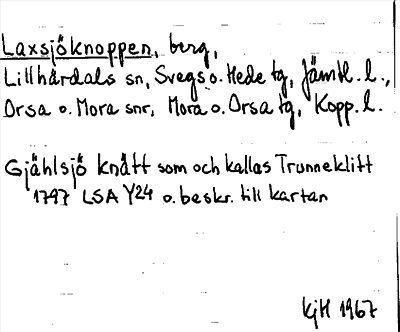 Laxsjöknoppen, berg,
Lillhärdals sn, Svegs o. Hede tg, Jämtl. l.,
Orsa o. Mora snr, Mora o. Orsa tg, Kopp. l.
Gjählsjö knått som och kallas Trunneklitt
1797 LSA Y24 o. beskr. till kartan
KjH 1967